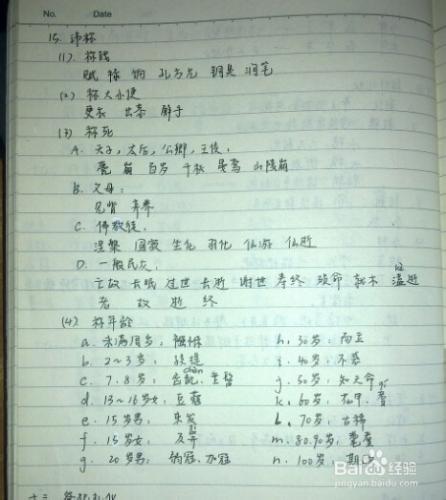 No. Date
15. 讳称
(1). 称钱
赋 禄 饷 孔方兄 铜臭 润笔
(2) 称大小便
更衣 出恭 解手
(3) 称死
A. 天子, 太后, 公卿, 王侯:
薨 崩 百岁 千秋 晏驾 山陵崩
B. 父母:
见背 弃养
C. 佛教徒,
涅槃 圆寂 坐化 羽化 仙游 仙逝
D. 一般民众:
亡故 长眠 过世 去逝 谢世 寿终 殒命 就木 溘逝
死 故 逝 终
(4) 称年龄
a. 未满周岁: 襁褓
b. 2~3岁: 孩提
c. 7.8岁: 龆龀 垂髫
d. 13~16岁女: 豆蔻
e. 15岁男: 束发
f. 15岁女: 及笄
g. 20岁男: 弱冠
h. 30岁: 而立
i. 40岁: 不惑
j. 50岁: 知天命
k. 60岁: 花甲. 耆
l. 70岁: 古稀
m. 80.90岁: 耄耋
n. 100岁: 期颐
Baidu 经验
jingyan.baidu.com